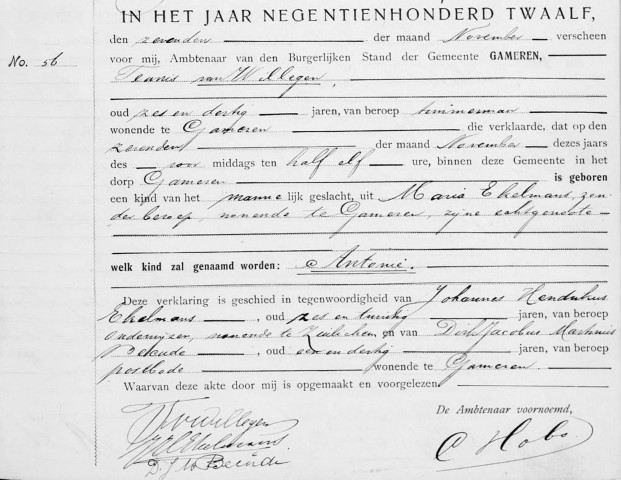 IN HET JAAR NEGENTIENHONDERD TWAALF,
No. 56
den zevenden der maand November verscheen
voor mij, Ambtenaar van den Burgerlijken Stand der Gemeente GAMEREN,
Teunis van Willegen,
oud zes en dertig jaren, van beroep timmerman
wonende te Gameren die verklaarde, dat op den
zevenden der maand November dezes jaars
des voor middags ten half elf ure, binnen deze Gemeente in het
dorp Gameren is geboren
een kind van het manne lijk geslacht, uit Maria Ekelmans, zon-
der beroep, wonende te Gameren, zijne echtgenoote
welk kind zal genaamd worden: Antonie.
Deze verklaring is geschied in tegenwoordigheid van Johannes Hendrikus
Ekelmans, oud zes en twintig jaren, van beroep
onderwijzer, wonende te Zuilichem en van Dirk Jacobus Marinus
oud een en dertig jaren, van beroep
postbode wonende te Gameren.
Waarvan deze akte door mij is opgemaakt en voorgelezen
De Ambtenaar voornoemd,
TvWillegen
JHEkelmans
C Hobo
D. J. M.